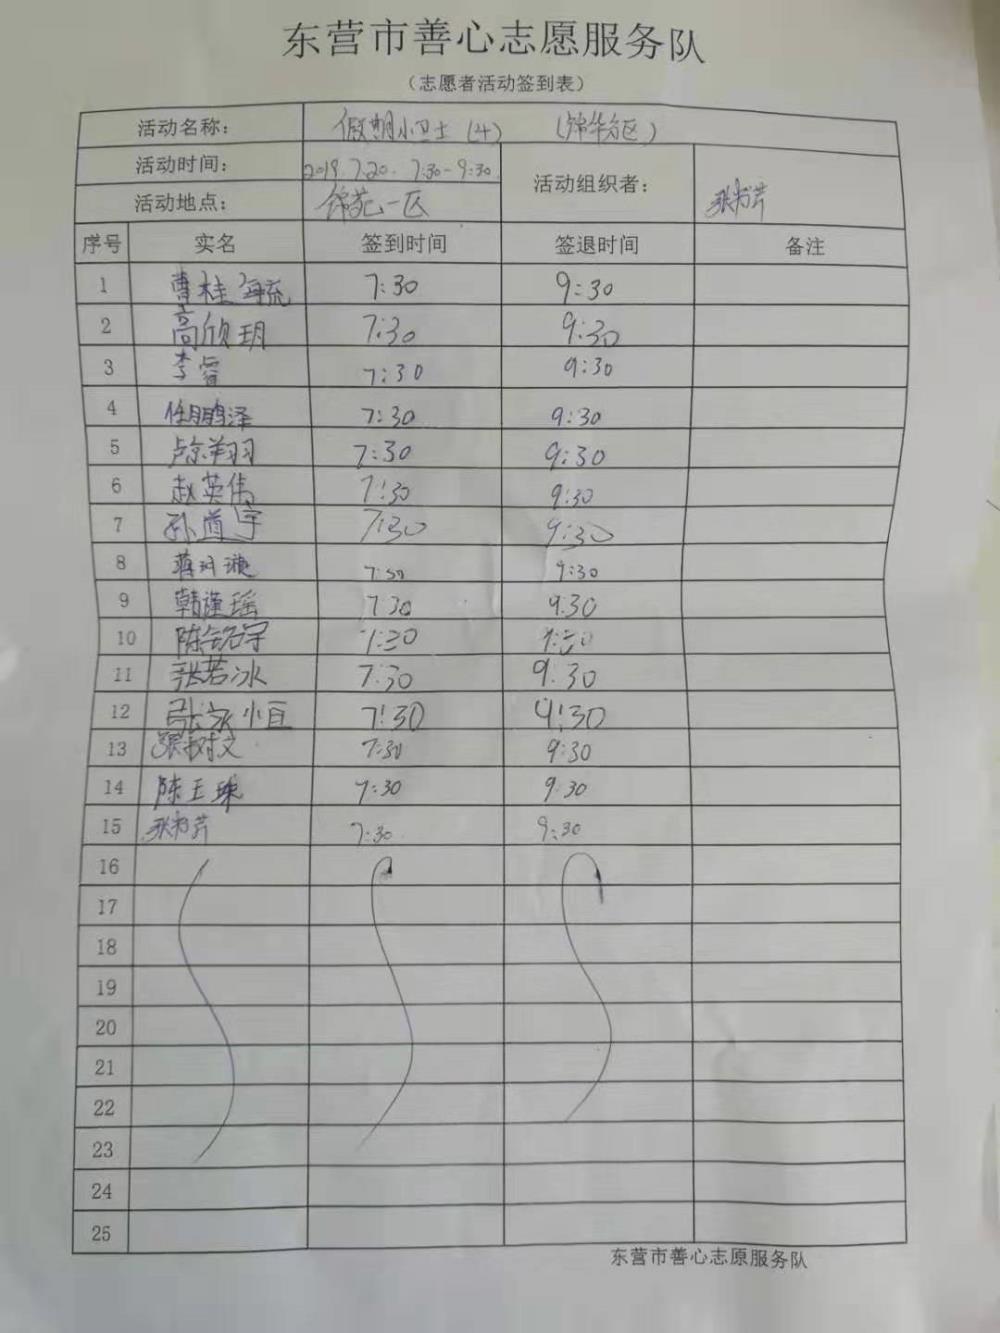 东营市善心志愿服务队
（志愿者活动签到表）
活动名称： 假期小卫士（4） （锦华分区）
活动时间： 2019.7.20. 7:30-9:30
活动组织者： 张书芹
活动地点： 锦苑一区
序号 实名 签到时间 签退时间 备注
1 曹桂毓 7:30 9:30
2 高欣玥 7:30 9:30
3 李睿 7:30 9:30
4 任鹏泽 7:30 9:30
5 翔羽 7:30 9:30
6 赵英伟 7:30 9:30
7 孙道宇 7:30 9:30
8 蒋 7:30 9:30
9 韩谨瑶 7:30 9:30
10 陈宇 7:30 9:30
11 张若冰 7:30 9:30
12 张 7:30 9:30
13 张树文 7:30 9:30
14 陈玉珠 7:30 9:30
15 张书芹 7:30 9:30
16
17
18
19
20
21
22
23
24
25
东营市善心志愿服务队